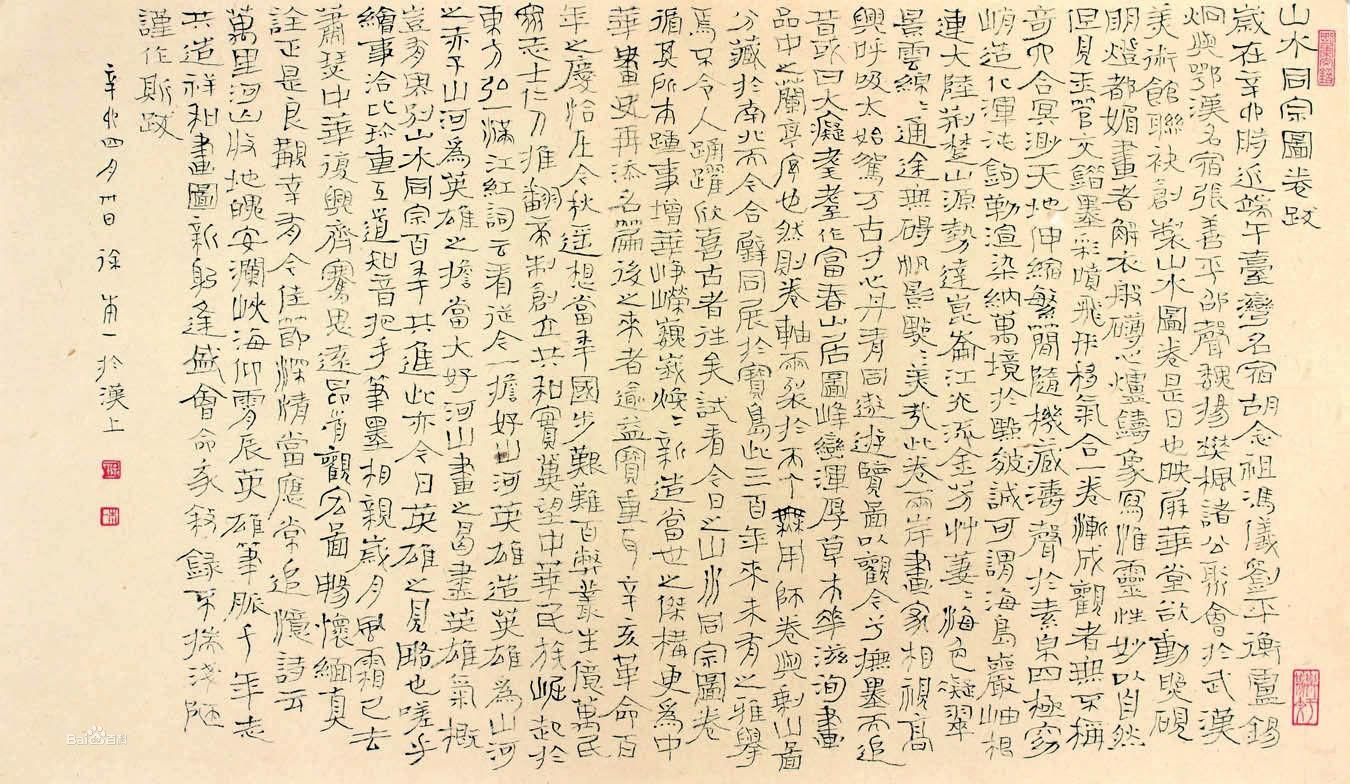 山水同宗圖卷跋
歲在辛卯時近端午臺灣名宿胡念祖馮儀劉平衡盧錫
炯與鄂漢名宿張善平邵聲魏揚樊楓諸公聚會於武漢
美術館聯袂創製山水圖卷是日也映屏華堂欲動熨硯
明燈都媚畫者解衣般礴心爐鑄象寫惟靈性妙以自然
但見玉管交錯墨彩噴飛形移氣合一卷漸成觀者無不稱
奇六合冥渺天地伸縮繁簡隨機藏濤聲於素帛四極窈
峭造化渾沌鉤勒渲染納萬境於點皴誠可謂海島巖岫相
連大陸荊楚山源勢達崑崙江流流金芳艸萋萋海色凝翠
景雲綿綿通途無礙帆影點點美哉此卷兩岸畫家相視高
興呼吸太始駕萬古寸心丹青同遊遊覽畐以觀今兮撫墨而追
昔或曰大癡老耄作富春山居圖峰巒渾厚草木華滋洵畫
品中之蘭亭序也然則卷軸兩裂於不个無用師卷與剩山圖
分藏於南北而今合璧同展於寶島此三百年來未有之雅舉
焉不令人踊躍欣喜古者往矣試看今日之山水同宗圖卷
循其所本踵事增華崢嶸巍峩煥煥新造當世之傑構更為中
華畫史再添名篇後之來者逾益寶重百 辛亥革命百
年之慶恰在今秋遥想當年國步艱難百弊叢生億萬民
窮志士仁人推翻帝制創立共和實冀望中華民族崛起於
東方弘一滿江紅詞云看從今一擔好山河英雄造英雄為山河
之赤子山河為英雄之擔當大好河山畫之曷盡英雄氣概
豈有異別山水同宗百年共進此亦今日英雄之見略也嗟乎
繪事洽比珍重互道知音把手筆墨相親歲月風霜已去
蕭瑟中華復興齊騫思遠昂首觀公畐暢懷緬真
詮正是良覯幸有今佳節深情當應常追憶詩云
萬里河山收地魄安瀾峽海仰霄辰英雄筆脈千年志
共造祥和畫圖新躬逢盛會命彖敘錄不揣淺陋
謹作斯跋
辛卯四月卅日 徐本一於漢上
Bai 百科